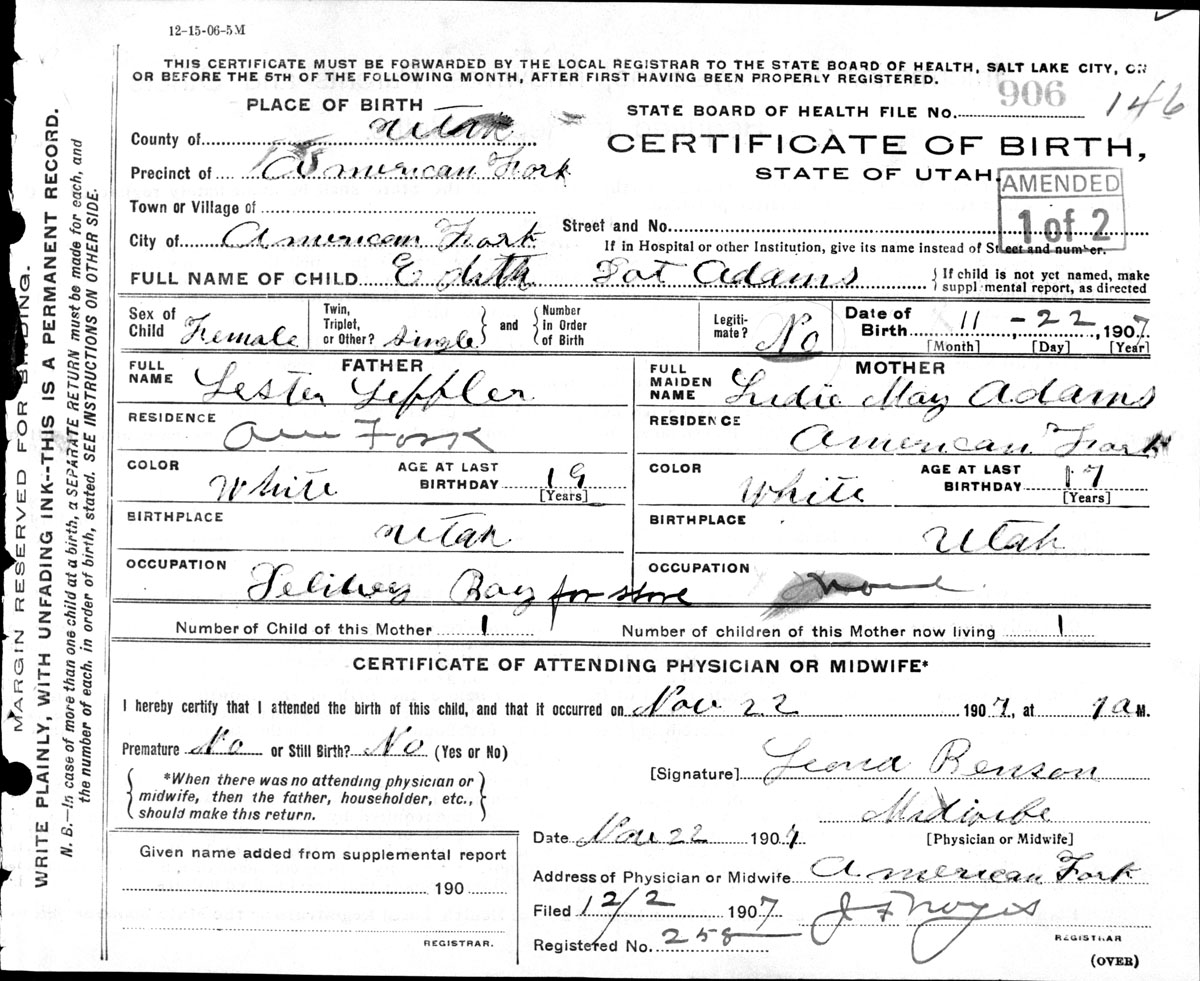 12-15-06-5M
THIS CERTIFICATE MUST BE FORWARDED BY THE LOCAL REGISTRAR TO THE STATE BOARD OF HEALTH, SALT LAKE CITY, ON
OR BEFORE THE 5TH OF THE FOLLOWING MONTH, AFTER FIRST HAVING BEEN PROPERLY REGISTERED.
PLACE OF BIRTH
STATE BOARD OF HEALTH FILE No. 906 146
County of Utah
CERTIFICATE OF BIRTH,
Precinct of American Fork
STATE OF UTAH.
AMENDED
1 of 2
Town or Village of
Street and No.
City of American Fork
If in Hospital or other Institution, give its name instead of Street and number.
FULL NAME OF CHILD Edith Adams
If child is not yet named, make supplemental report, as directed
Sex of Child Female
Twin, Triplet, or Other? Single and Number in Order of Birth
Legitimate? No
Date of Birth 11 - 22, 1907
[Month] [Day] [Year]
FATHER
FULL NAME Lester
MOTHER
FULL MAIDEN NAME May Adams
RESIDENCE Am Fork
RESIDENCE American Fork
COLOR White AGE AT LAST BIRTHDAY 19 [Years]
COLOR White AGE AT LAST BIRTHDAY 17 [Years]
BIRTHPLACE Utah
BIRTHPLACE Utah
OCCUPATION Boy for store
OCCUPATION None
Number of Child of this Mother 1 Number of children of this Mother now living 1
CERTIFICATE OF ATTENDING PHYSICIAN OR MIDWIFE*
I hereby certify that I attended the birth of this child, and that it occurred on Nov 22 1907, at 1 a M.
Premature No or Still Birth? No (Yes or No)
*When there was no attending physician or
midwife, then the father, householder, etc.,
should make this return.
[Signature] Leona Benson
Midwife
[Physician or Midwife]
Date Nov 22 1907
Given name added from supplemental report
190
REGISTRAR.
Address of Physician or Midwife American Fork
Filed 12/2 1907 J F Noyes
REGISTRAR
Registered No. 258
(OVER)
MARGIN RESERVED FOR BINDING.
WRITE PLAINLY, WITH UNFADING INK--THIS IS A PERMANENT RECORD.
N. B.—In case of more than one child at a birth, a SEPARATE RETURN must be made for each, and
the number of each, in order of birth, stated. SEE INSTRUCTIONS ON OTHER SIDE.